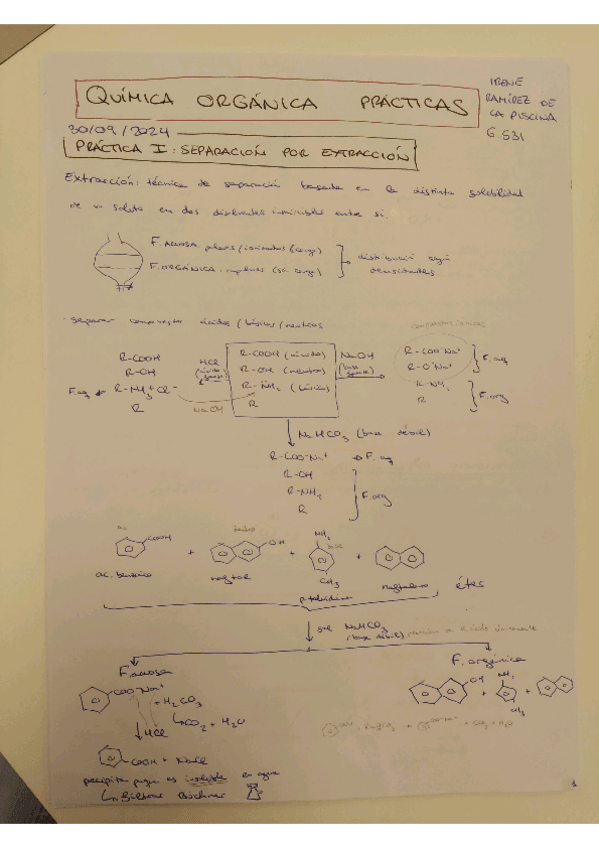 QUÍMICA ORGÁNICA PRÁCTICAS
IRENE
RAMÍREZ DE
LA PISCINA
G S31
30/09/2024
PRÁCTICA I: SEPARACIÓN POR EXTRACCIÓN
Extracción: técnica de separación basada en la distinta solubilidad
de un soluto en dos disolventes inmiscibles entre sí.
F. ACUOSA: polares/ionizados (carga)
F. ORGÁNICA: apolares (sin carga)
distribución según
densidades
separar compuestos ácidos/básicos/neutros
compuestos iónicos
R-COOH
R-OH
F.aq R-NH3+Cl-
R
HCl
(ácido
fuerte)
NaOH
R-COOH (ácido)
R-OH (neutro)
R-NH2 (básico)
R
NaOH
(base
fuerte)
R-COO-Na+
R-O-Na+
F.aq
R-NH2
R
F.org
NaHCO3 (base débil)
R-COO-Na+ → F.aq
R-OH
R-NH2
R
F.org
ac.
COOH
+
OH
+
NH2
CH3
+
ac. benzoico
naftol
p-toluidina
naftaleno
éter
NaHCO3
(base débil)
F. acuosa
COO-Na+
+ H2CO3
CO2 + H2O
HCl
COOH + NaCl
precipita porque es insoluble en agua
filtrar Büchner
F. orgánica
OH
+
NH2
CH3
+
1